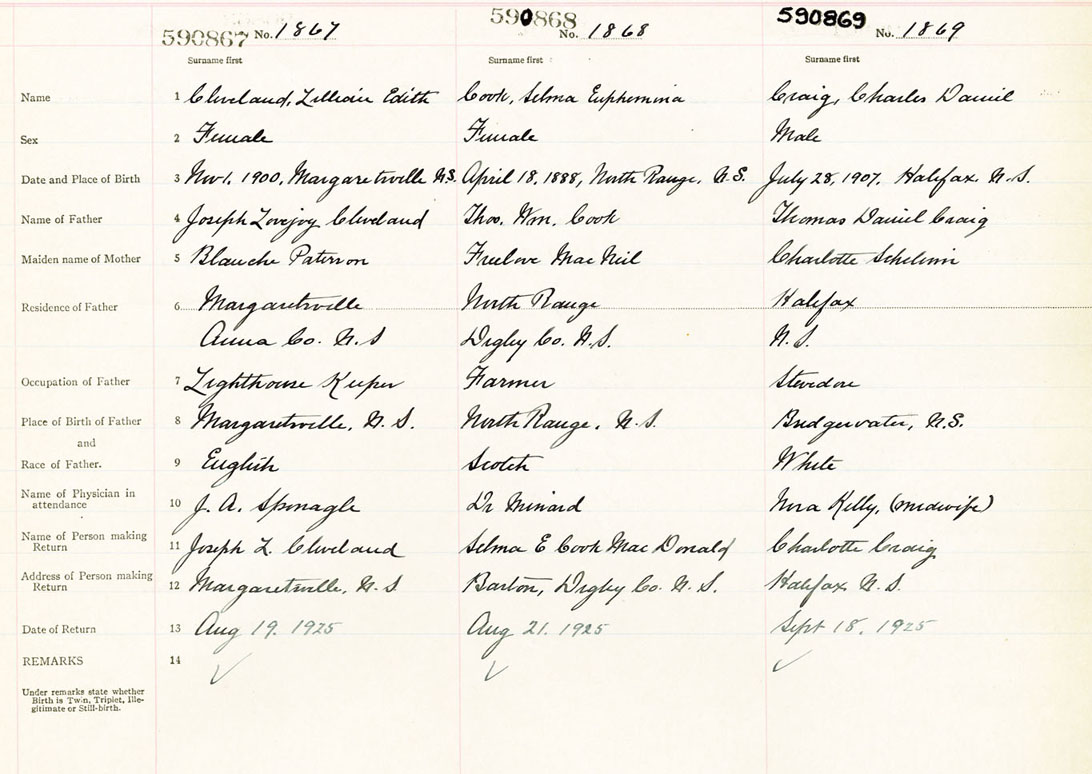 590867 No. 1867 590868 No. 1868 590869 No. 1869
Surname first Surname first Surname first
Name 1 Cleveland, Lillian Edith Cook, Selma Euphemina Craig, Charles Daniel
Sex 2 Female Female Male
Date and Place of Birth 3 Nov 1. 1900, Margaretville N.S. April 18, 1888, North Range, N.S. July 28, 1907. Halifax N.S.
Name of Father 4 Joseph Lovejoy Cleveland Thos. Wm. Cook Thomas Daniel Craig
Maiden name of Mother 5 Blanche Paterson Freelove MacNeil Charlotte
Residence of Father 6 Margaretville North Range Halifax
Anna Co. N.S Digby Co. N.S. N.S.
Occupation of Father 7 Lighthouse Keeper Farmer Stevedore
Place of Birth of Father 8 Margaretville, N.S. North Range, N.S. Bridgewater, N.S.
and
Race of Father. 9 English Scotch White
Name of Physician in
attendance 10 J. A. Sponagle Dr Minard Nora Kelly, (midwife)
Name of Person making
Return 11 Joseph L. Cleveland Selma E Cook MacDonald Charlotte Craig
Address of Person making
Return 12 Margaretville, N.S Barton, Digby Co. N.S. Halifax N.S.
Date of Return 13 Aug 19. 1925 Aug 21. 1925 Sept 18. 1925
REMARKS 14
Under remarks state whether
Birth is Twin, Triplet, Ille-
gitimate or Still-birth.